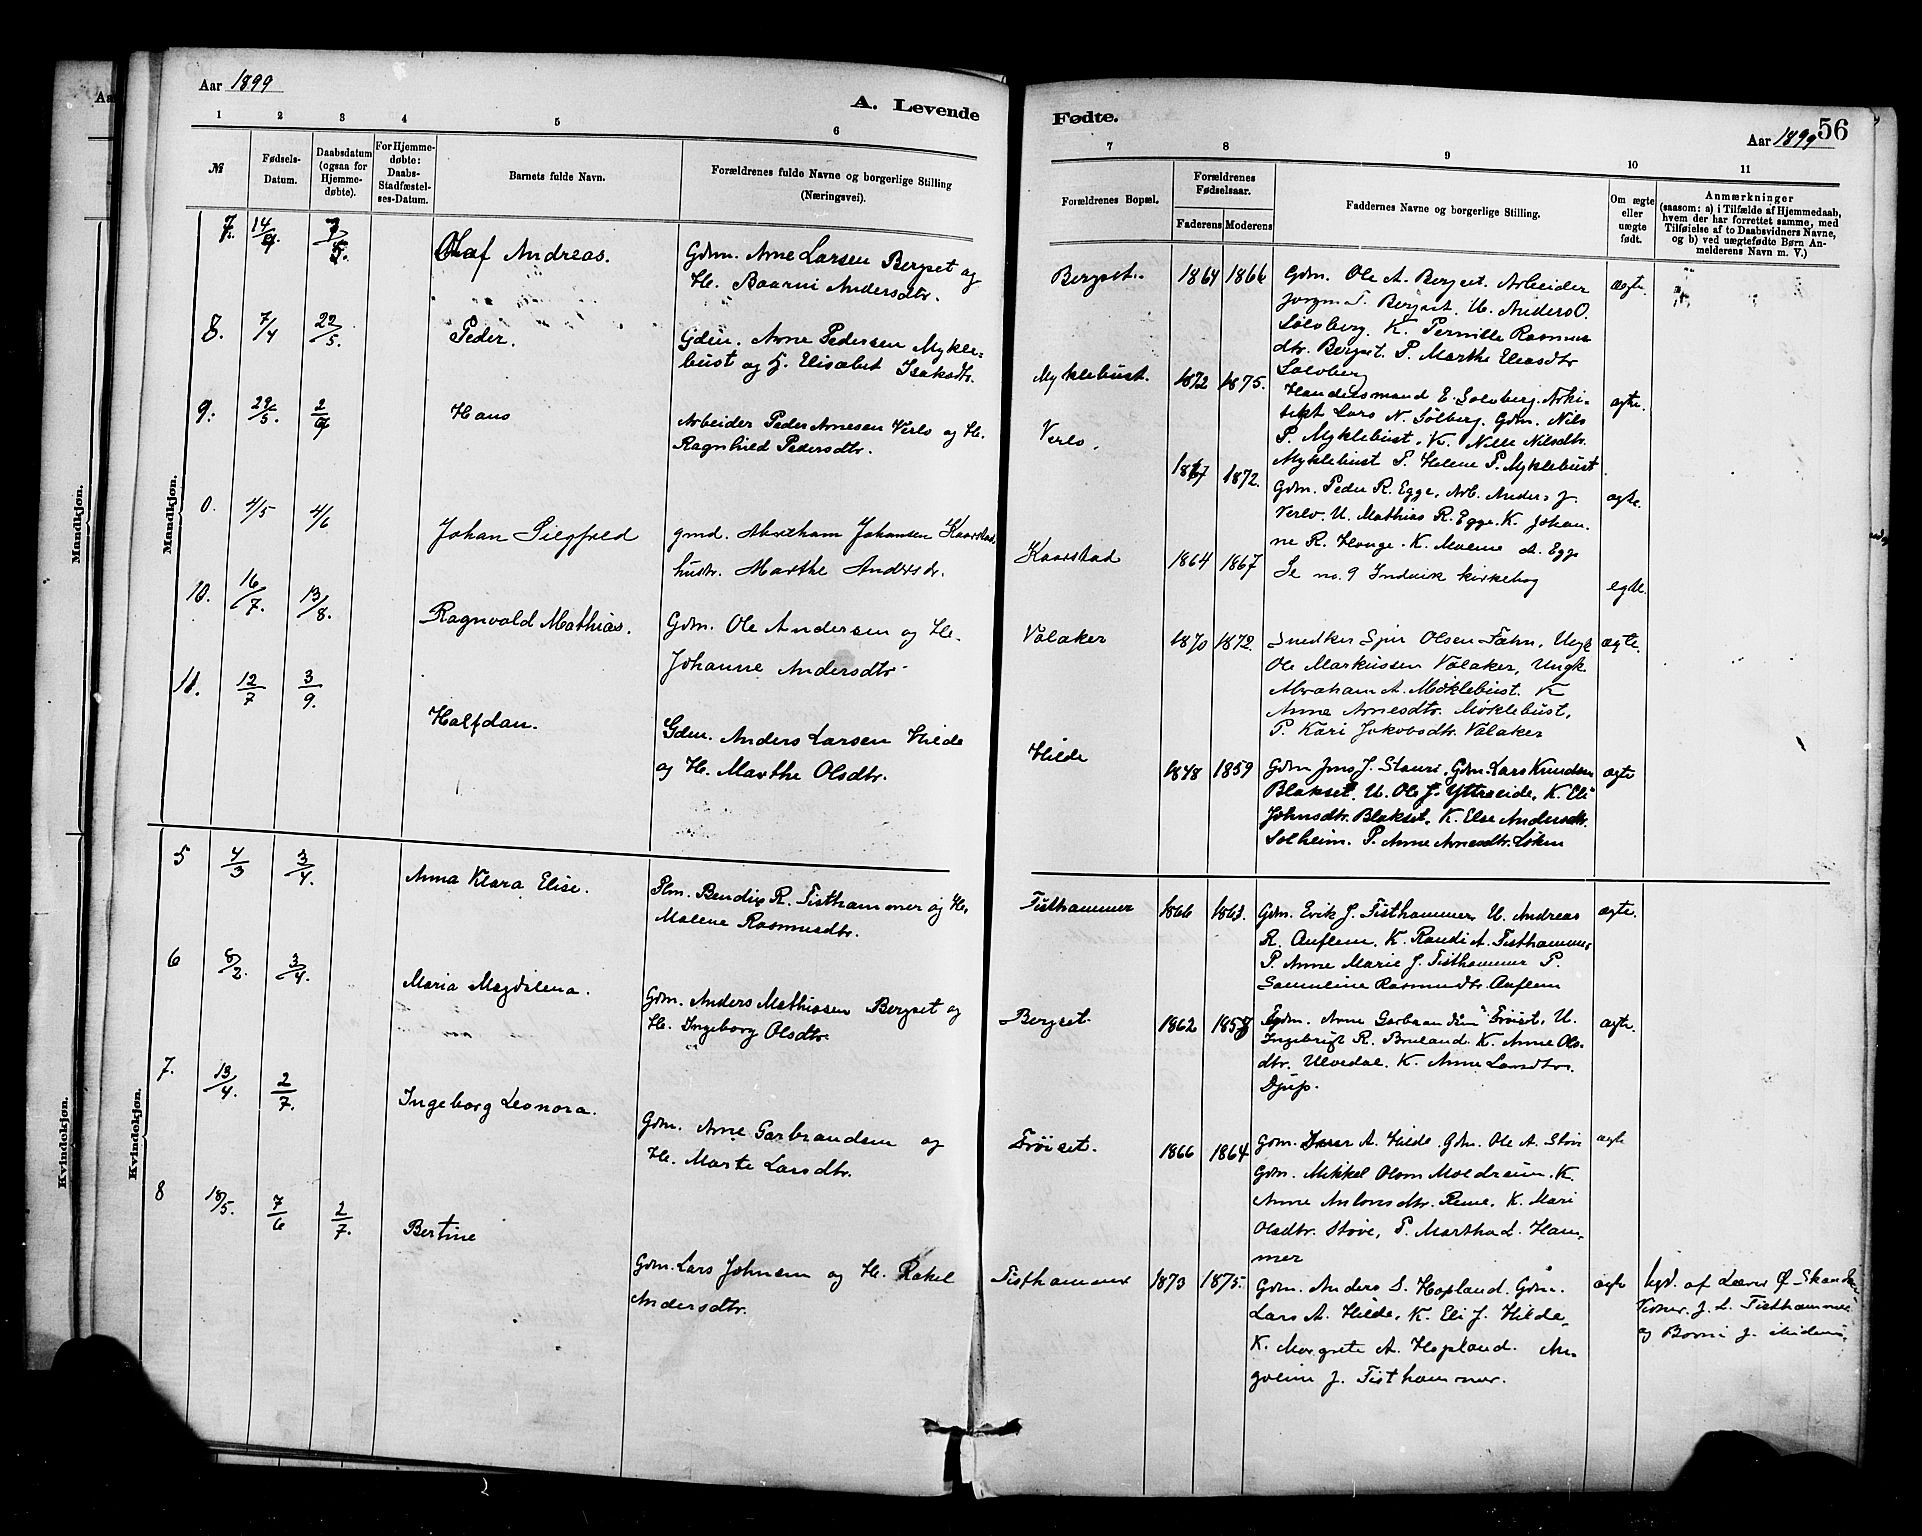 Aar 1899
A. Levende
Fødte.
Aar 1899
56
1 2 3 4 5 6 7 8 9 10 11
№
Fødsels-
Datum.
Daabsdatum
(ogsaa for
Hjemme-
døbte).
For Hjemme-
døbte:
Daabs-
Stadfæstel-
ses-Datum.
Barnets fulde Navn.
Forældrenes fulde Navne og borgerlige Stilling
(Næringsvei).
Forældrenes Bopæl.
Forældrenes
Fødselsaar.
Faderens Moderens
Faddernes Navne og borgerlige Stilling.
Om ægte
eller
uægte
født.
Anmærkninger
(saasom: a) i Tilfælde af Hjemmedaab,
hvem der har forrettet samme, med
Tilføielse af to Daabsvidners Navne,
og b) ved uægtefødte Børn An-
melderens Navn m. V.)
Mandkjøn.
Mandkjøn.
7. 14/4. 7/5. Olaf Andreas.
Gdm. Arne Larsen Berget og
H. Baarni Andersdtr.
Bergset. 1864 1866
Gdm. Ole A. Bergset. Arbeider
Bergset. U. Anders O.
Solvberg. K. Pernille Rasmus
dtr. Bergset. P. Marthe Eliasdtr
Solvberg
ægte.
8. 7/4 22/5. Peder.
Gdm. Arne Pedersen Mykle-
bust og H. Elisabet Isaksdtr.
Myklebust. 1872 1875.
Handelsmand E. Solvberg. Arki-
tekt Lars N. Sølberg. Gdm. Nils
P. Myklebust. K. Nille Nilsdtr.
Myklebust P. Helene P. Myklebust
ægte.
9. 29/5. 2/7 Hans
Arbeider Peder Arnesen Verlo og H.
Ragnhild Pedersdtr.
Verlo. 1867 1872.
Gdm. Peder R. Egge. Arb. Anders J.
Verlo. U. Mathias R. Egge. K. Johan-
ne R. Hauge. K. Malene A. Egge
ægte.
0. 4/5 4/6 Johan Siegfred
gmd. Abraham Johansen Kaarstad
hustr. Marthe Andersdr.
Kaarstad 1864 1867
Se no. 9 Indvik kirkebog
egte.
10. 16/7. 13/8. Ragnvald Mathias.
Gdm. Ole Andersen og H.
Johanne Andersdtr
Valaker 1870 1872.
Snedker Sper Olsen Fahn, Ungk
Ole Markussen Valaker, Ungk.
Abraham A. Møklebust. K
Anne Arnesdtr. Møklebust,
P. Kari Jakobsdtr. Valaker
ægte.
11. 12/7 3/9. Halfdan.
Gdm. Anders Larsen Hilde
og H. Marthe Olsdtr.
Hilde 1848 1859
Gdm Jens J. Stauri. Gdm. Lars Knudsen
Blakset. U. Ole J. Yttreeide. K. Eli
Johnsdtr. Blakset. K. Else Andersdtr.
Solheim. P. Anne Arnesdtr. Løken
ægte
Kvindekjøn.
Kvindekjøn.
5 4/3 3/4. Anna Klara Elise.
Plm. Bendix R. Tisthammer og H.
Malene Rasmusdtr.
Tisthammer 1866 1863.
Gdm. Erik J. Tisthammer, U. Andreas
R. Auflem. K. Randi A. Tisthammer.
P. Anne Marie J. Tisthammer P.
Samuline Rasmusdtr Auflem
ægte.
6 8/2. 3/4. Maria Magdalena.
Gdm. Anders Mathiasen Bergset og
H. Ingeborg Olsdtr.
Bergset. 1862 1858
Gdm. Arne Garbrandsen Frøiset, U.
Ingebrigt R. Bruland. K. Anne Ols-
dtr. Ulvedal. K. Anne Larsdtr.
Djup.
ægte.
7. 13/4. 2/7. Ingeborg Leonora.
Gdm. Arne Garbrandsen og
H. Marte Larsdtr.
Frøiset. 1866 1864
Gdm. Lasse A. Hilde. Gdm. Ole A. Støve
Gdm. Mikkel Olsen Moldreim. K.
Anne Antonsdtr. Reme, K. Mari
Olsdtr. Støve, P. Martha L. Ham-
mer
ægte
8 18/5. 7/6 2/7. Bertine
Gdm. Lars Johnsen og H. Rakel
Andersdtr.
Tisthammer 1873 1875.
Gdm. Anders S. Hopland. Gdm.
Lars A. Hilde, K. Eli J. Hilde,
K. Margrete A. Hopland. An-
goline J. Tisthammer.
ægte
hjd. af Lærer Ø. Skan
Vidner, J. L. Tisthammer
og
2